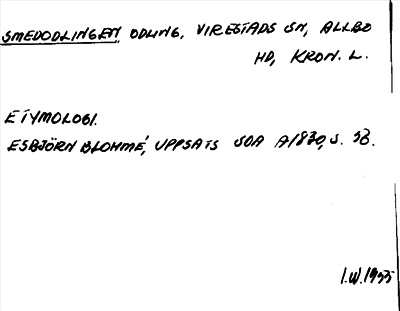 SMEDODLINGEN, ODLING, VIRESTADS SN, ALLBO
HD, KRON. L.
ETYMOLOGI.
ESBJÖRN BLOHMÉ, UPPSATS SOA A1830, S.
I.W. 1955